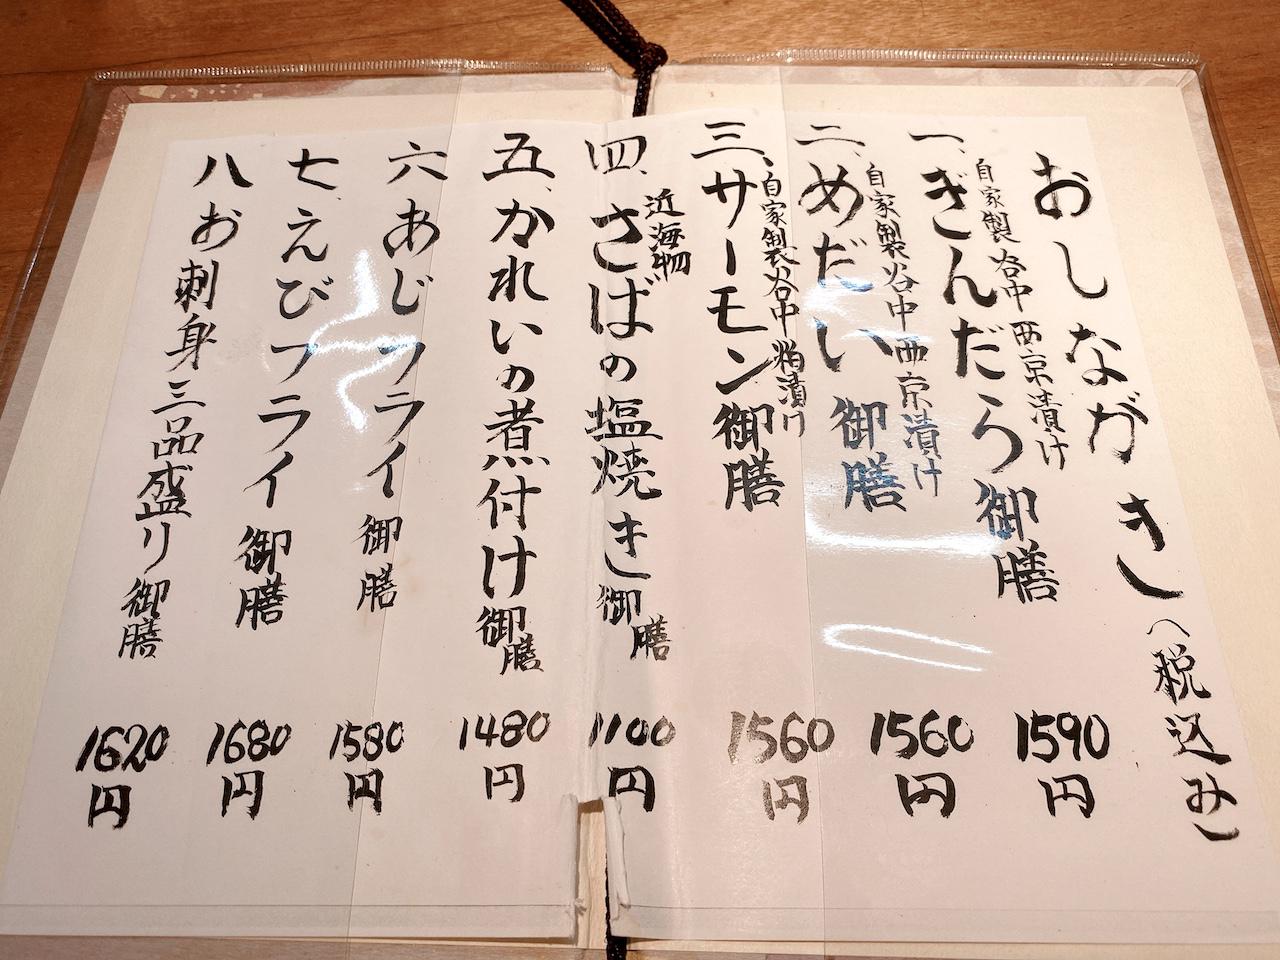 おしながき（税込み）
一、自家製谷中西京漬け
ぎんだら御膳 1590円
二、自家製谷中西京漬け
めだい御膳 1560円
三、自家製谷中粕漬け
サーモン御膳 1560円
四、近海物
さばの塩焼き御膳 1100円
五、かれいの煮付け御膳 1480円
六 あじフライ御膳 1580円
七、えびフライ御膳 1680円
八 お刺身三品盛り御膳 1620円